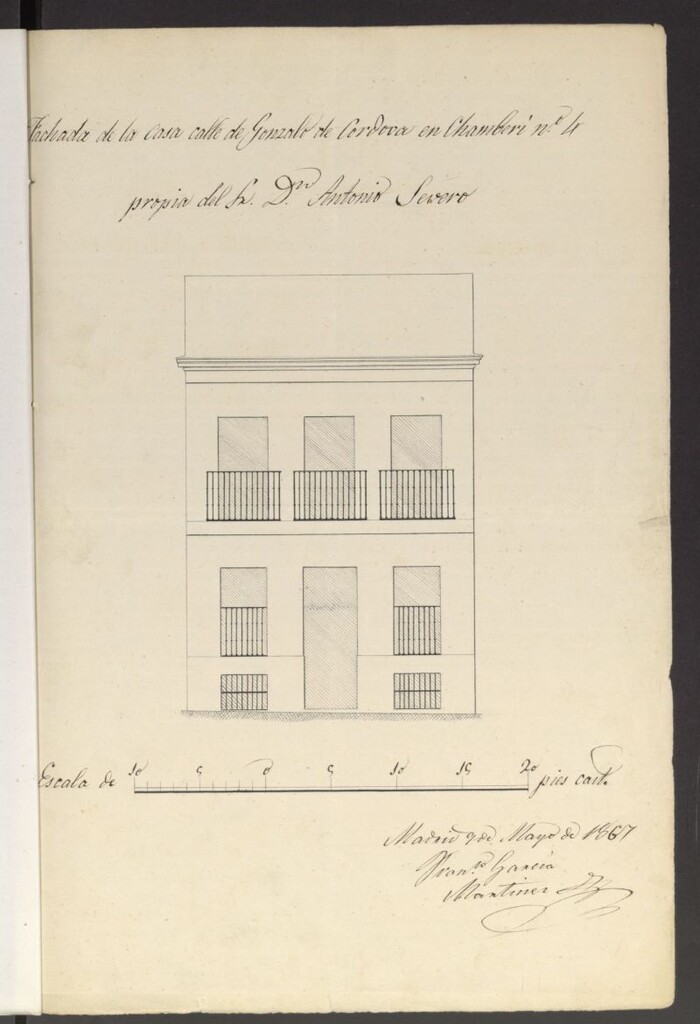 Fachada de la casa calle de Gonzalo de Cordova en Chamberí nº 4
propia del Sr. Dn. Antonio Severo
Escala de 10 5 0 5 10 15 20 pies cast.
Madrid 7 de Mayo de 1867
Franco. García
Martinez